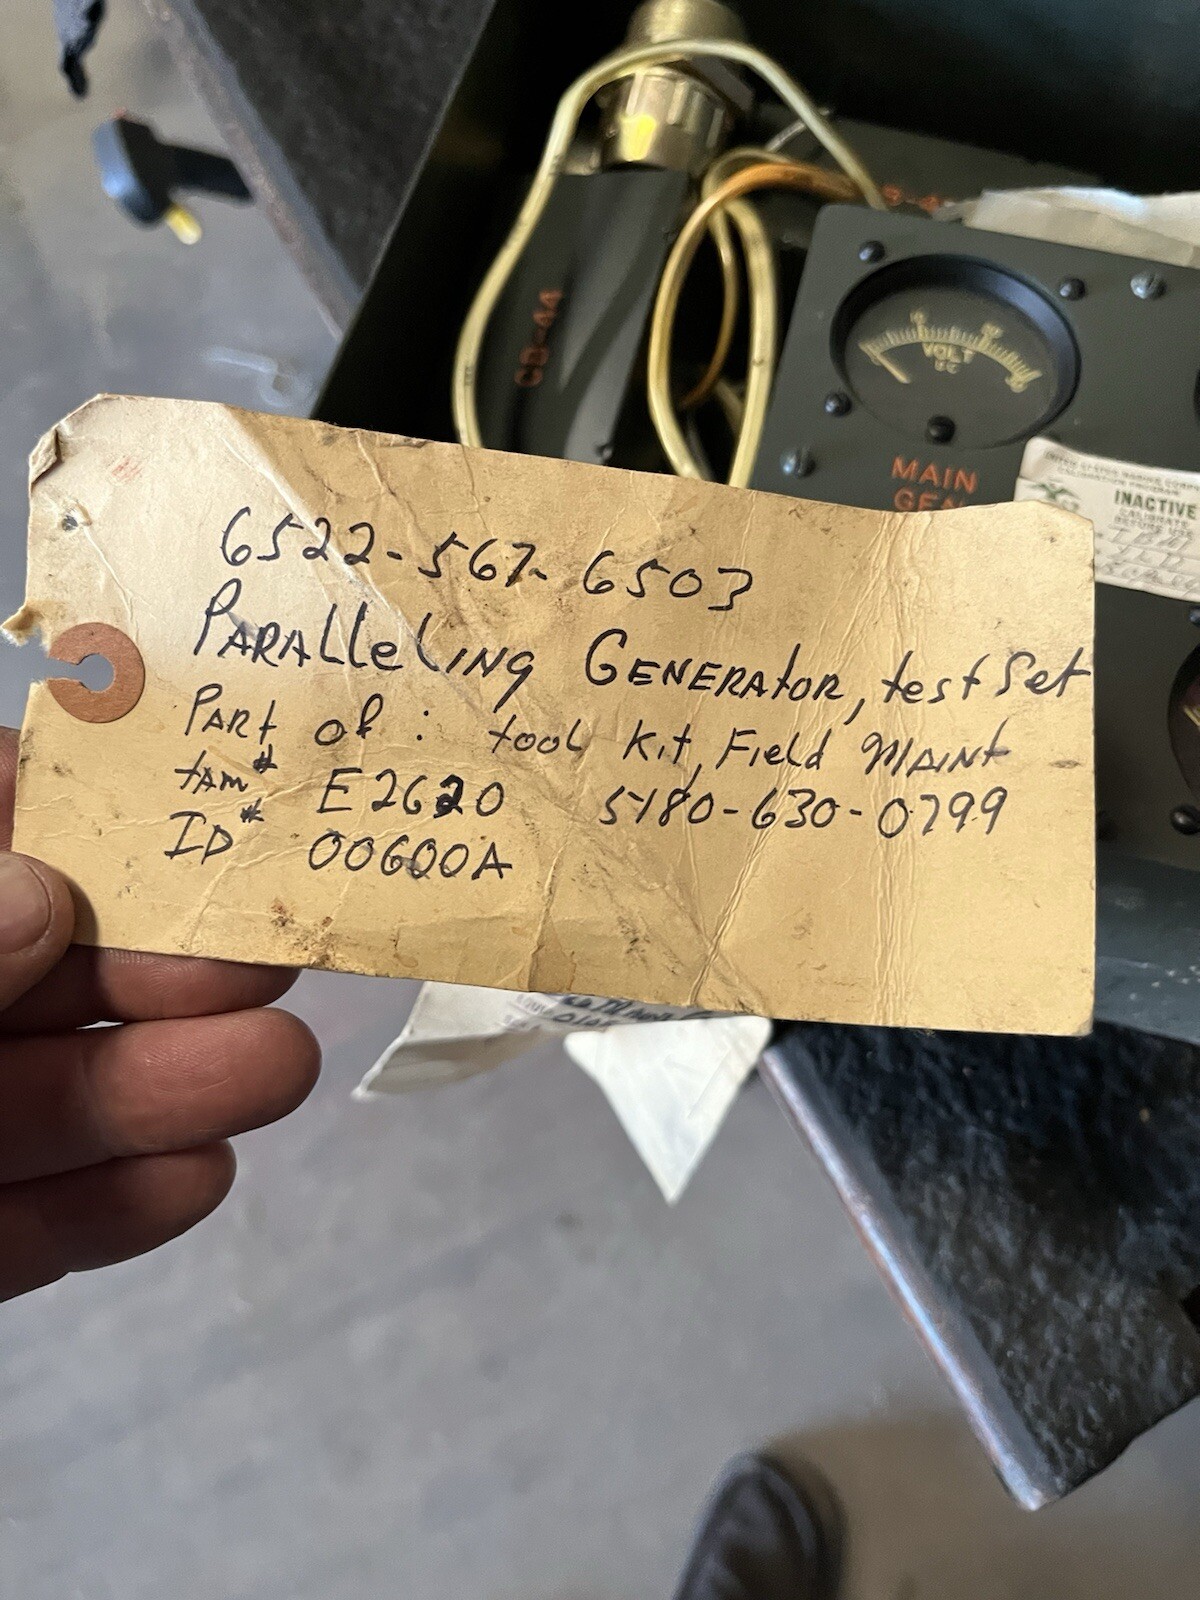 CB-44
10
20
VOLT
MAIN
GEN
UNITED STATES MARINE CORPS
CALIBRATION PROGRAM
INACTIVE
CALIBRATE
BEFORE USE
6522-567-6503
PARAlleLING GENERAtOR, test Set
PARt of: tool Kit, Field MAINt
tam# E2620 5180-630-0799
ID# 00600A